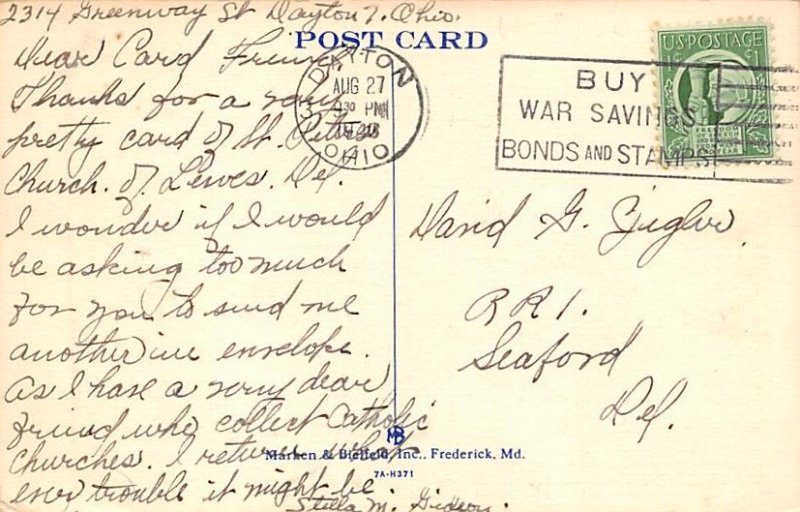 2314 Greenway St Dayton 7. Ohio.
POST CARD
Dear Card Friend
Thanks for a very
pretty card of St. Peters
Church. of Lewes. Del.
I wonder if I would
be asking too much
for you to send me
another in envelope.
As I have a very dear
friend who collect Catholic
Churches. I return what
ever trouble it might be
Stella M.
DAYTON
AUG 27
30 PM
OHIO
BUY
WAR SAVINGS
BONDS AND STAMPS
U.S. POSTAGE
1¢
David G. Zigler
RR 1.
Seaford
Del.
MB
Marken & Bielfeld, Inc., Frederick, Md.
7A-H371